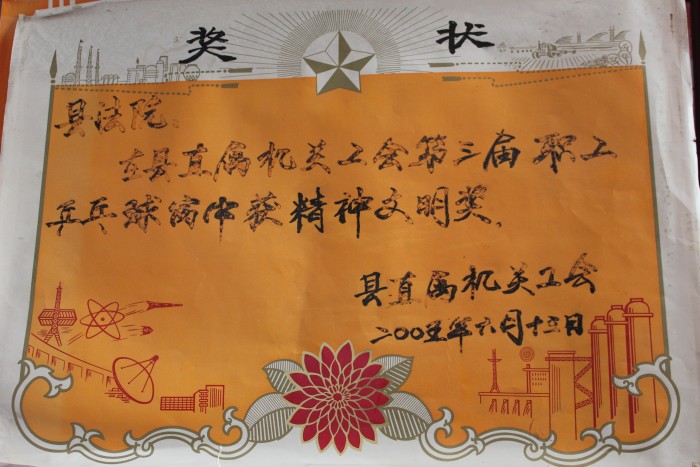 奖状
县法院、
在县直属机关工会第三届职工
乒乓球赛中获精神文明奖、
县直属机关工会
二00五年六月十三日